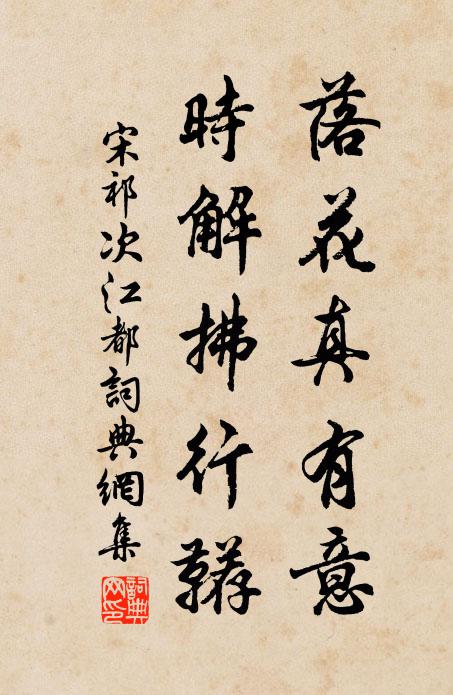 落花真有意
時解拂行鞯
宋祁次江都詞典網集
詞典网印